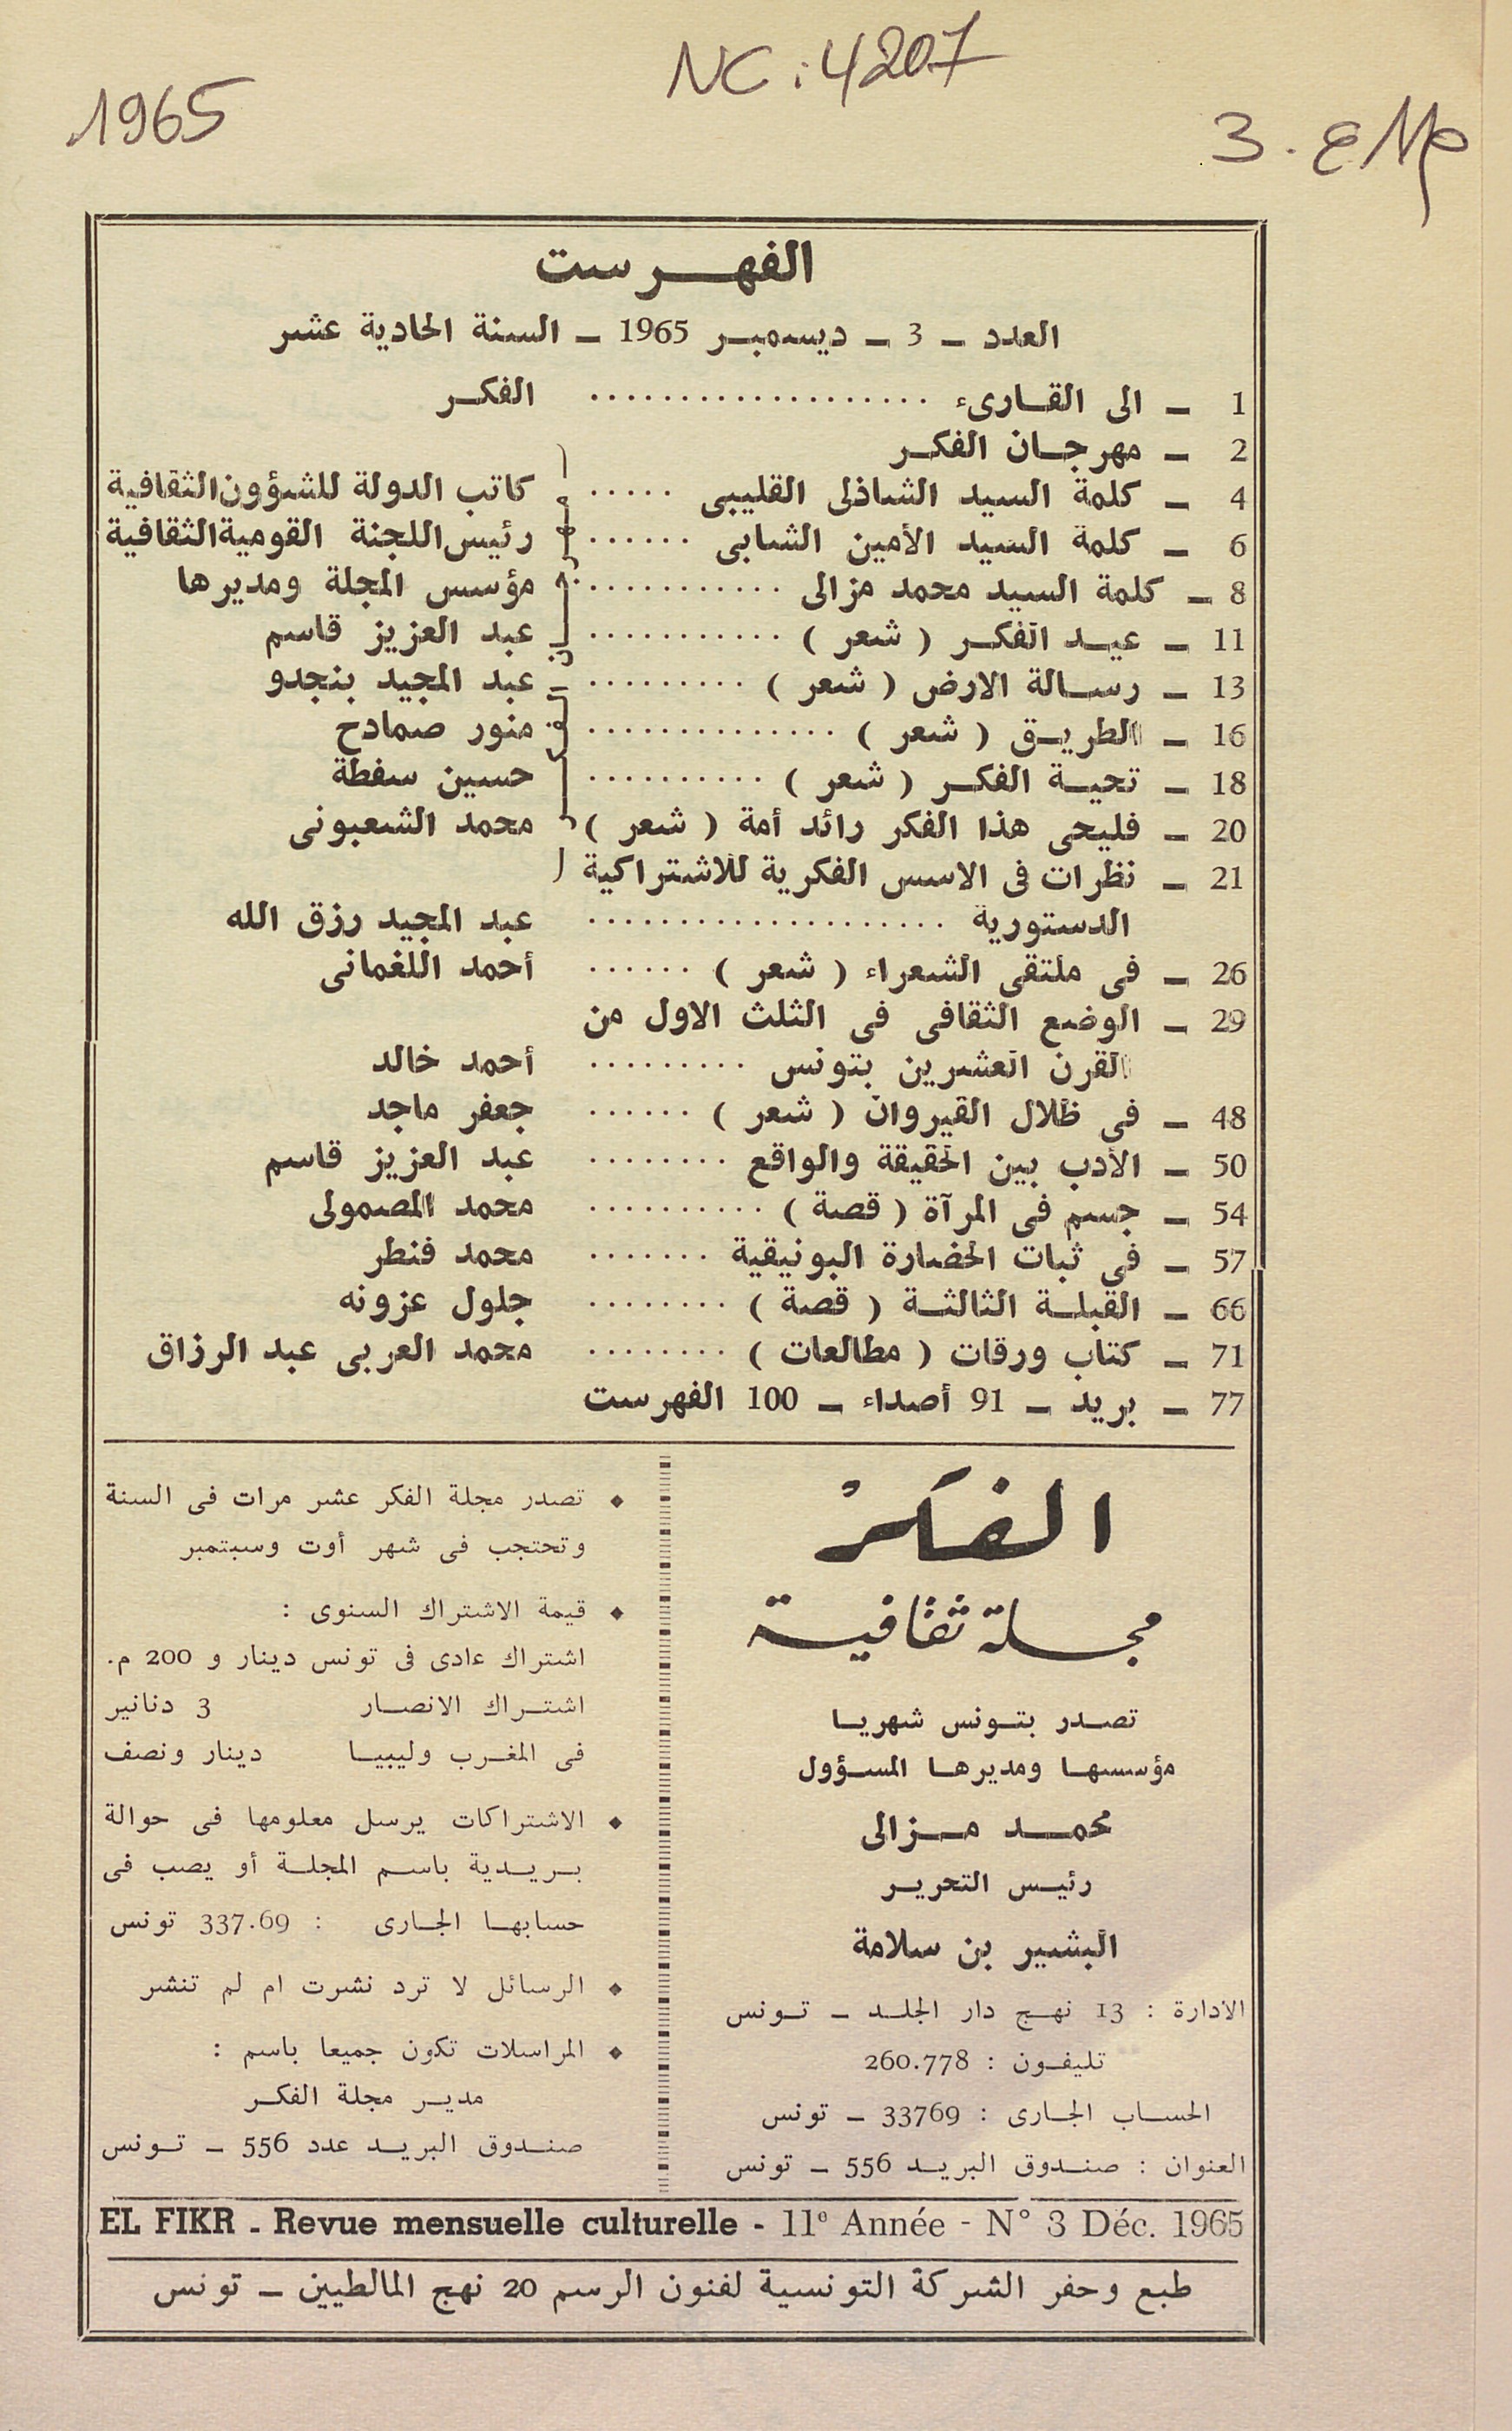 NC : 4207
1965
الفهرست
العدد ـ 3 ـ ديسمبر 1965 ـ السنة الحادية عشر
1 ـ الى القارىء .................... الفكر
2 ـ مهرجان الفكر
4 ـ كلمة السيد الشاذلى القليبى ..... كاتب الدولة للشؤون الثقافية
6 ـ كلمة السيد الأمين الشابى ...... رئيس اللجنة القومية الثقافية
8 ـ كلمة السيد محمد مزالى ............ مؤسس المجلة ومديرها
11 ـ عيد الفكر ( شعر ) ........... عبد العزيز قاسم
13 ـ رسالة الارض ( شعر ) ......... عبد المجيد بنجدو
16 ـ الطريق ( شعر ) .............. منور صمادح
18 ـ تحية الفكر ( شعر ) .......... حسين سفطة
20 ـ فليحى هذا الفكر رائد أمة ( شعر ) محمد الشعبونى
مهرجان الفكر
21 ـ نظرات فى الاسس الفكرية للاشتراكية
الدستورية .................... عبد المجيد رزق الله
26 ـ فى ملتقى الشعراء ( شعر ) ...... أحمد اللغمانى
29 ـ الوضع الثقافى فى الثلث الاول من
القرن العشرين بتونس ......... أحمد خالد
48 ـ فى ظلال القيروان ( شعر ) ...... جعفر ماجد
50 ـ الأدب بين الحقيقة والواقع ........ عبد العزيز قاسم
54 ـ جسم فى المرآة ( قصة ) .......... محمد المصمولى
57 ـ فى ثبات الحضارة البونيقية ....... محمد فنطر
66 ـ القبلة الثالثة ( قصة ) ........ جلول عزونه
71 ـ كتاب ورقات ( مطالعات ) ........ محمد العربى عبد الرزاق
77 ـ بريد ـ 91 أصداء ـ 100 الفهرست
الفكر
مجلة ثقافية
تصدر بتونس شهريا
مؤسسها ومديرها المسؤول
محمد مزالى
رئيس التحرير
البشير بن سلامة
الادارة : 13 نهج دار الجلد ـ تونس
تليفون : 260.778
الحساب الجارى : 33769 ـ تونس
العنوان : صندوق البريد 556 ـ تونس
◆ تصدر مجلة الفكر عشر مرات فى السنة
وتحتجب فى شهر أوت وسبتمبر
◆ قيمة الاشتراك السنوى :
اشتراك عادى فى تونس دينار و 200 م.
اشتراك الانصار 3 دنانير
فى المغرب وليبيا دينار ونصف
◆ الاشتراكات يرسل معلومها فى حوالة
بريدية باسم المجلة أو يصب فى
حسابها الجارى : 337.69 تونس
◆ الرسائل لا ترد نشرت ام لم تنشر
◆ المراسلات تكون جميعا باسم :
مدير مجلة الفكر
صندوق البريد عدد 556 ـ تونس
EL FIKR - Revue mensuelle culturelle - 11e Année - N° 3 Déc. 1965
طبع وحفر الشركة التونسية لفنون الرسم 20 نهج المالطيين ـ تونس